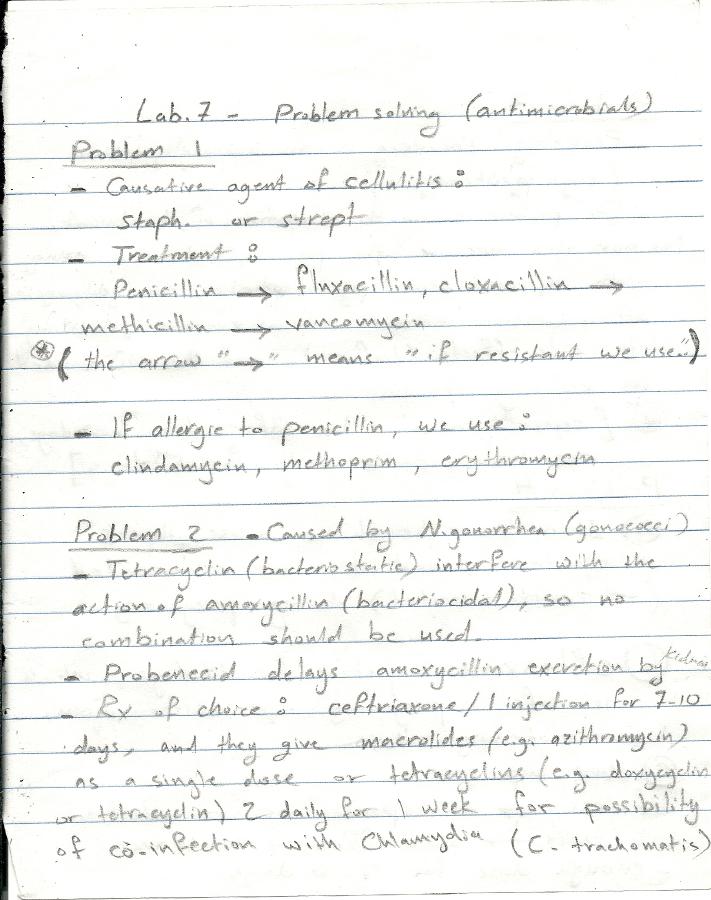 Lab. 7 - Problem solving (antimicrobials)
Problem 1
- Causative agent of cellulitis :
staph. or strept
- Treatment :
Penicillin → fluxacillin, cloxacillin →
methicillin → vancomycin
(the arrow "→" means "if resistant we use")
- If allergic to penicillin, we use :
clindamycin, methoprim, erythromycin
Problem 2 - Caused by N.gonorrhea (gonococci)
- Tetracyclin (bacteriostatic) interfere with the
action of amoxycillin (bacteriocidal), so no
combination should be used.
- Probenecid delays amoxycillin excretion by kidney
- Rx of choice : ceftriaxone / 1 injection for 7-10
days, and they give macrolides (e.g. azithromycin)
as a single dose or tetracyclins (e.g. doxycyclin
or tetracyclin) 2 daily for 1 week for possibility
of co-infection with Chlamydia (C. trachomatis)